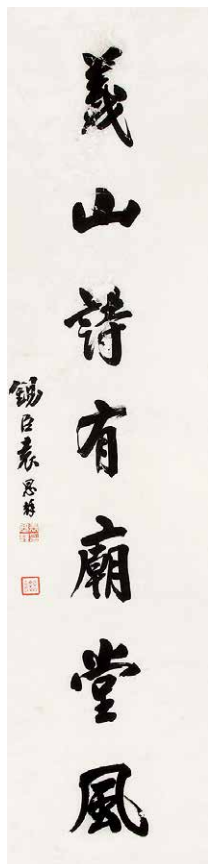 義山詩有廟堂風
錫臣袁思韠